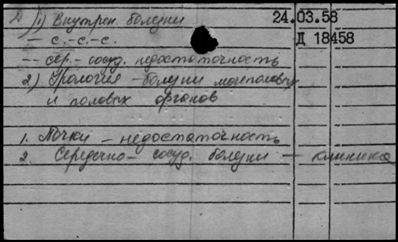 1) Внутрен. болезни
24.03.58
— с.-с.-с.
Д 18458
-- сер.- сосуд. недостаточность
2) Урология — болезни мочеполовых
и половых органов
1. Почки — недостаточность
2. Сердечно- сосуд. болезни — клиника